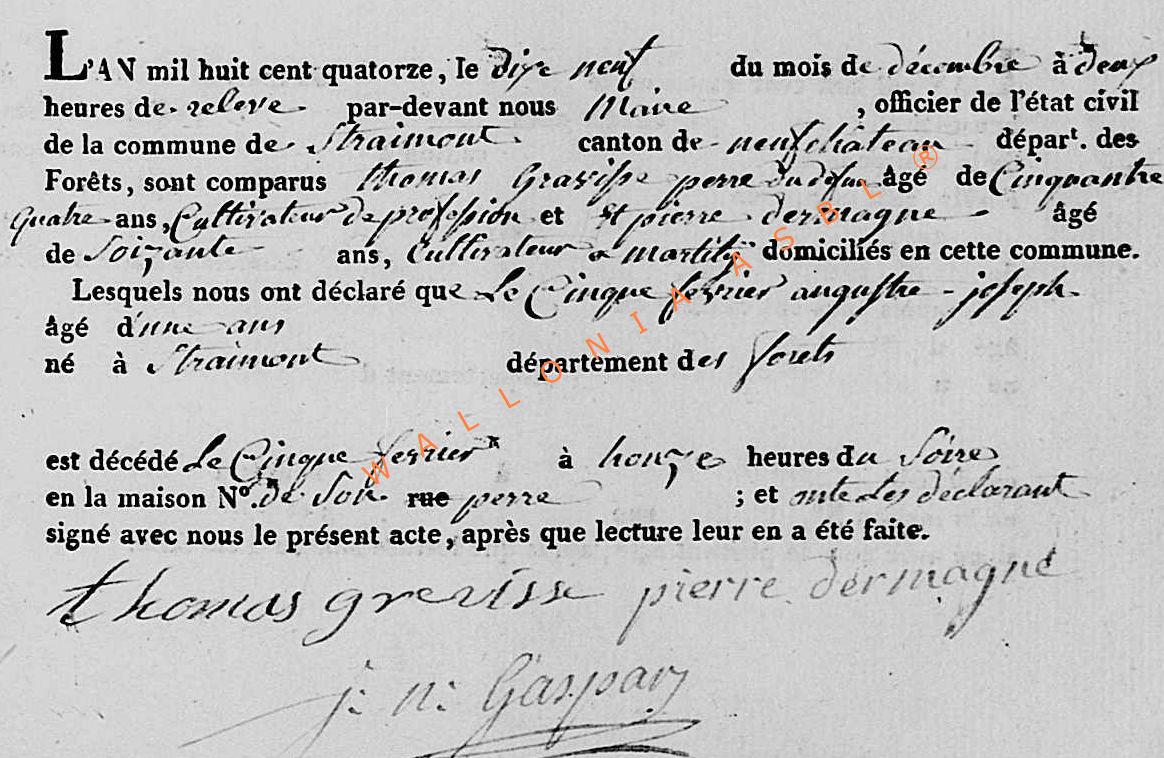 L'AN mil huit cent quatorze, le dixe neuf du mois de décembre à deux
heures de releve par-devant nous Maire , officier de l'état civil
de la commune de Straimont canton de neufchâteau départ. des
Forêts, sont comparus thomas Gravisse perre du defun âgé de Cinquantre
quatre ans, Cultivateur de profession et et pierre dermagne âgé
de Soizante ans, Cultivateur a domiciliés en cette commune.
Lesquels nous ont déclaré que Le Cinque fevrier augustre - joseph
âgé d'une ans
né à Straimont département des forets
est décédé Le Cinque fevrier à honze heures du Soire
en la maison N°. de Son rue perre ; et déclarant
signé avec nous le présent acte, après que lecture leur en a été faite.
thomas grevisse pierre dermagne
j: n: Gaspar
WALLONIA ASBL ®